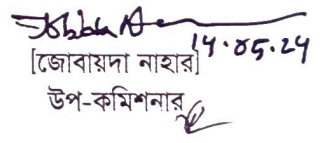 14.05.24
[জোবায়দা নাহার]
উপ-কমিশনার